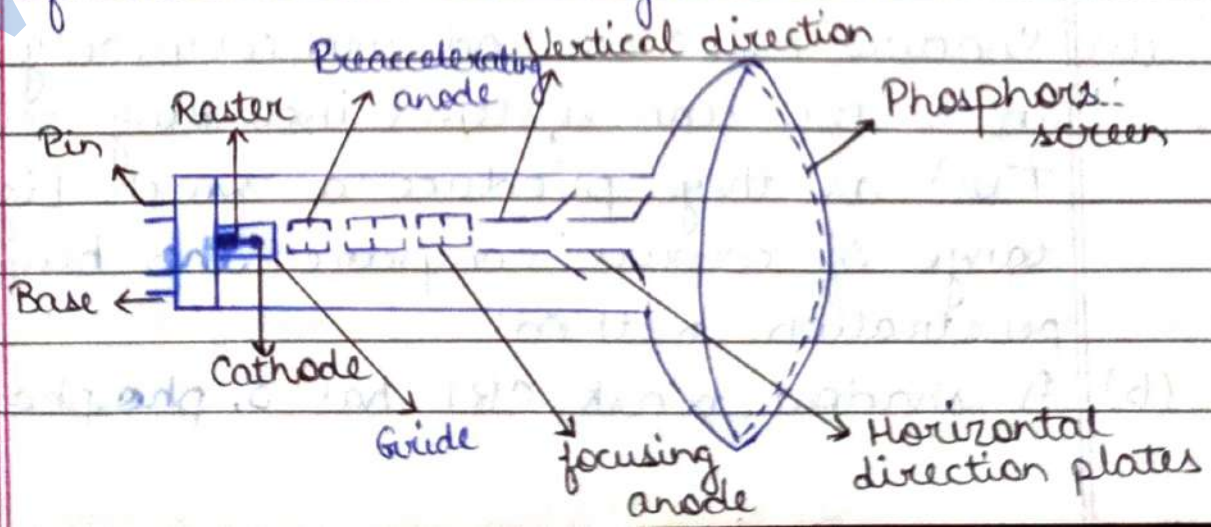 Preaccelerating
anode
Vertical direction
Raster
Pin
Phosphors
screen
Base
Cathode
Gride
focusing
anode
Horizontal
direction plates